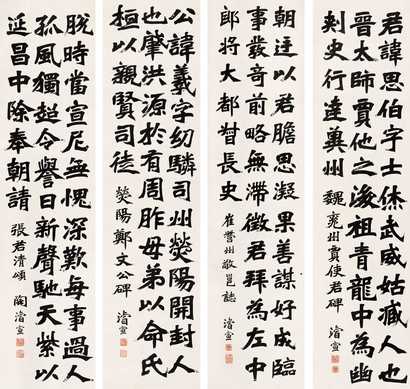 君諱思伯字士休武威姑臧人也
晉太師賈他之後祖青龍中為幽
刾史行達冀州 魏兗州賈使君碑 濬宣
朝廷以君膽思凝果善謀好成臨
事發奇前略無滯徵君拜為左中
郎將大都督長史 崔營州敬邕誌 濬宣
公諱羲字幼驎司州熒陽開封人
也肇洪源於有周胙母弟以命氏
桓以親賢司徒 熒陽鄭文公碑 濬宣
脫時當宣尼無愧深歎每事過人
孤風獨超令譽日新聲馳天紫以
延昌中除奉朝請 張君清頌 陶濬宣